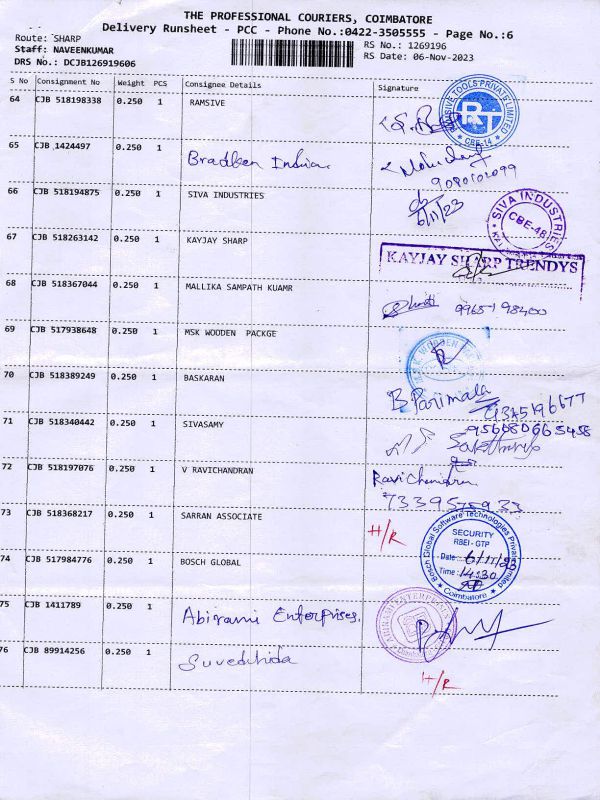 THE PROFESSIONAL COURIERS, COIMBATORE
Delivery Runsheet - PCC - Phone No.:0422-3505555 - Page No.:6
Route: SHARP
Staff: NAVEENKUMAR
DRS No.: DCJB1269619606
RS No.: 1269196
RS Date: 06-Nov-2023
S No Consignment No Weight PCS Consignee Details Signature
64 CJB 518198338 0.250 1 RAMSIVE
RAMSIVE TOOLS PRIVATE LIMITED
RT
CBE-14
65 CJB 1424497 0.250 1 Bradken India.
9080101099
66 CJB 518194875 0.250 1 SIVA INDUSTRIES
6/11/23
SIVA INDUSTRIES
CBE-48
67 CJB 518263142 0.250 1 KAYJAY SHARP
KAYJAY SHARP TRENDYS
68 CJB 518367044 0.250 1 MALLIKA SAMPATH KUAMR
99651 98400
69 CJB 517938648 0.250 1 MSK WOODEN PACKGE
WOODEN
70 CJB 518389249 0.250 1 BASKARAN
B Parimala
71 CJB 518340442 0.250 1 SIVASAMY
72 CJB 518197076 0.250 1 V RAVICHANDRAN
Ravichandran
73 CJB 518368217 0.250 1 SARRAN ASSOCIATE
H/R
74 CJB 517984776 0.250 1 BOSCH GLOBAL
Bosch Global Software Technologies Private Limited
SECURITY
RBEI - GTP
Date: 6/11/23
Time: 14:30
Coimbatore
75 CJB 1411789 0.250 1 Abirami Enterprises.
76 CJB 89914256 0.250 1
H/R